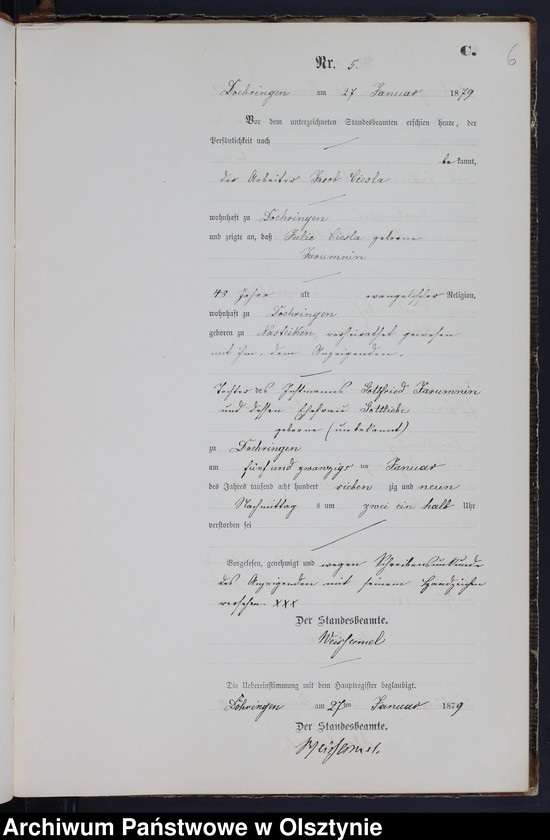 C. 6
Nr. 5.
Dochringen am 27 Januar 1879
Vor dem unterzeichneten Standesbeamten erschien heute, der
Persönlichkeit nach
be kannt,
der Arbeiter Jacob Ciesla
wohnhaft zu Dochringen
und zeigte an, daß Julie Ciesla geborne
48 Jahre alt evangelischer Religion,
wohnhaft zu Dochringen
geboren zu verheirathet gewesen
mit ihm, dem Anzeigenden,
Tochter des Gottfried
und dessen Ehefrau Gottliebe
geborne (unbekannt)
zu Dochringen
am fünf und zwanzigs ten Januar
des Jahres tausend acht hundert sieben zig und neun
Nachmittag s um zwei ein halb Uhr
verstorben sei
Vorgelesen, genehmigt und wegen Schreibensunkunde
des Anzeigenden mit seinem Handzeichen
versehen. XXX
Der Standesbeamte.
Weissermel
Die Uebereinstimmung mit dem Hauptregister beglaubigt.
Döhringen am 27ten Januar 1879
Der Standesbeamte.
Weissermel.
Archiwum Państwowe w Olsztynie